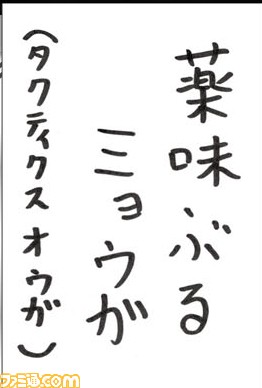 薬味ぶる
ミョウが
（タクティクスオウガ）
ファミ通.com